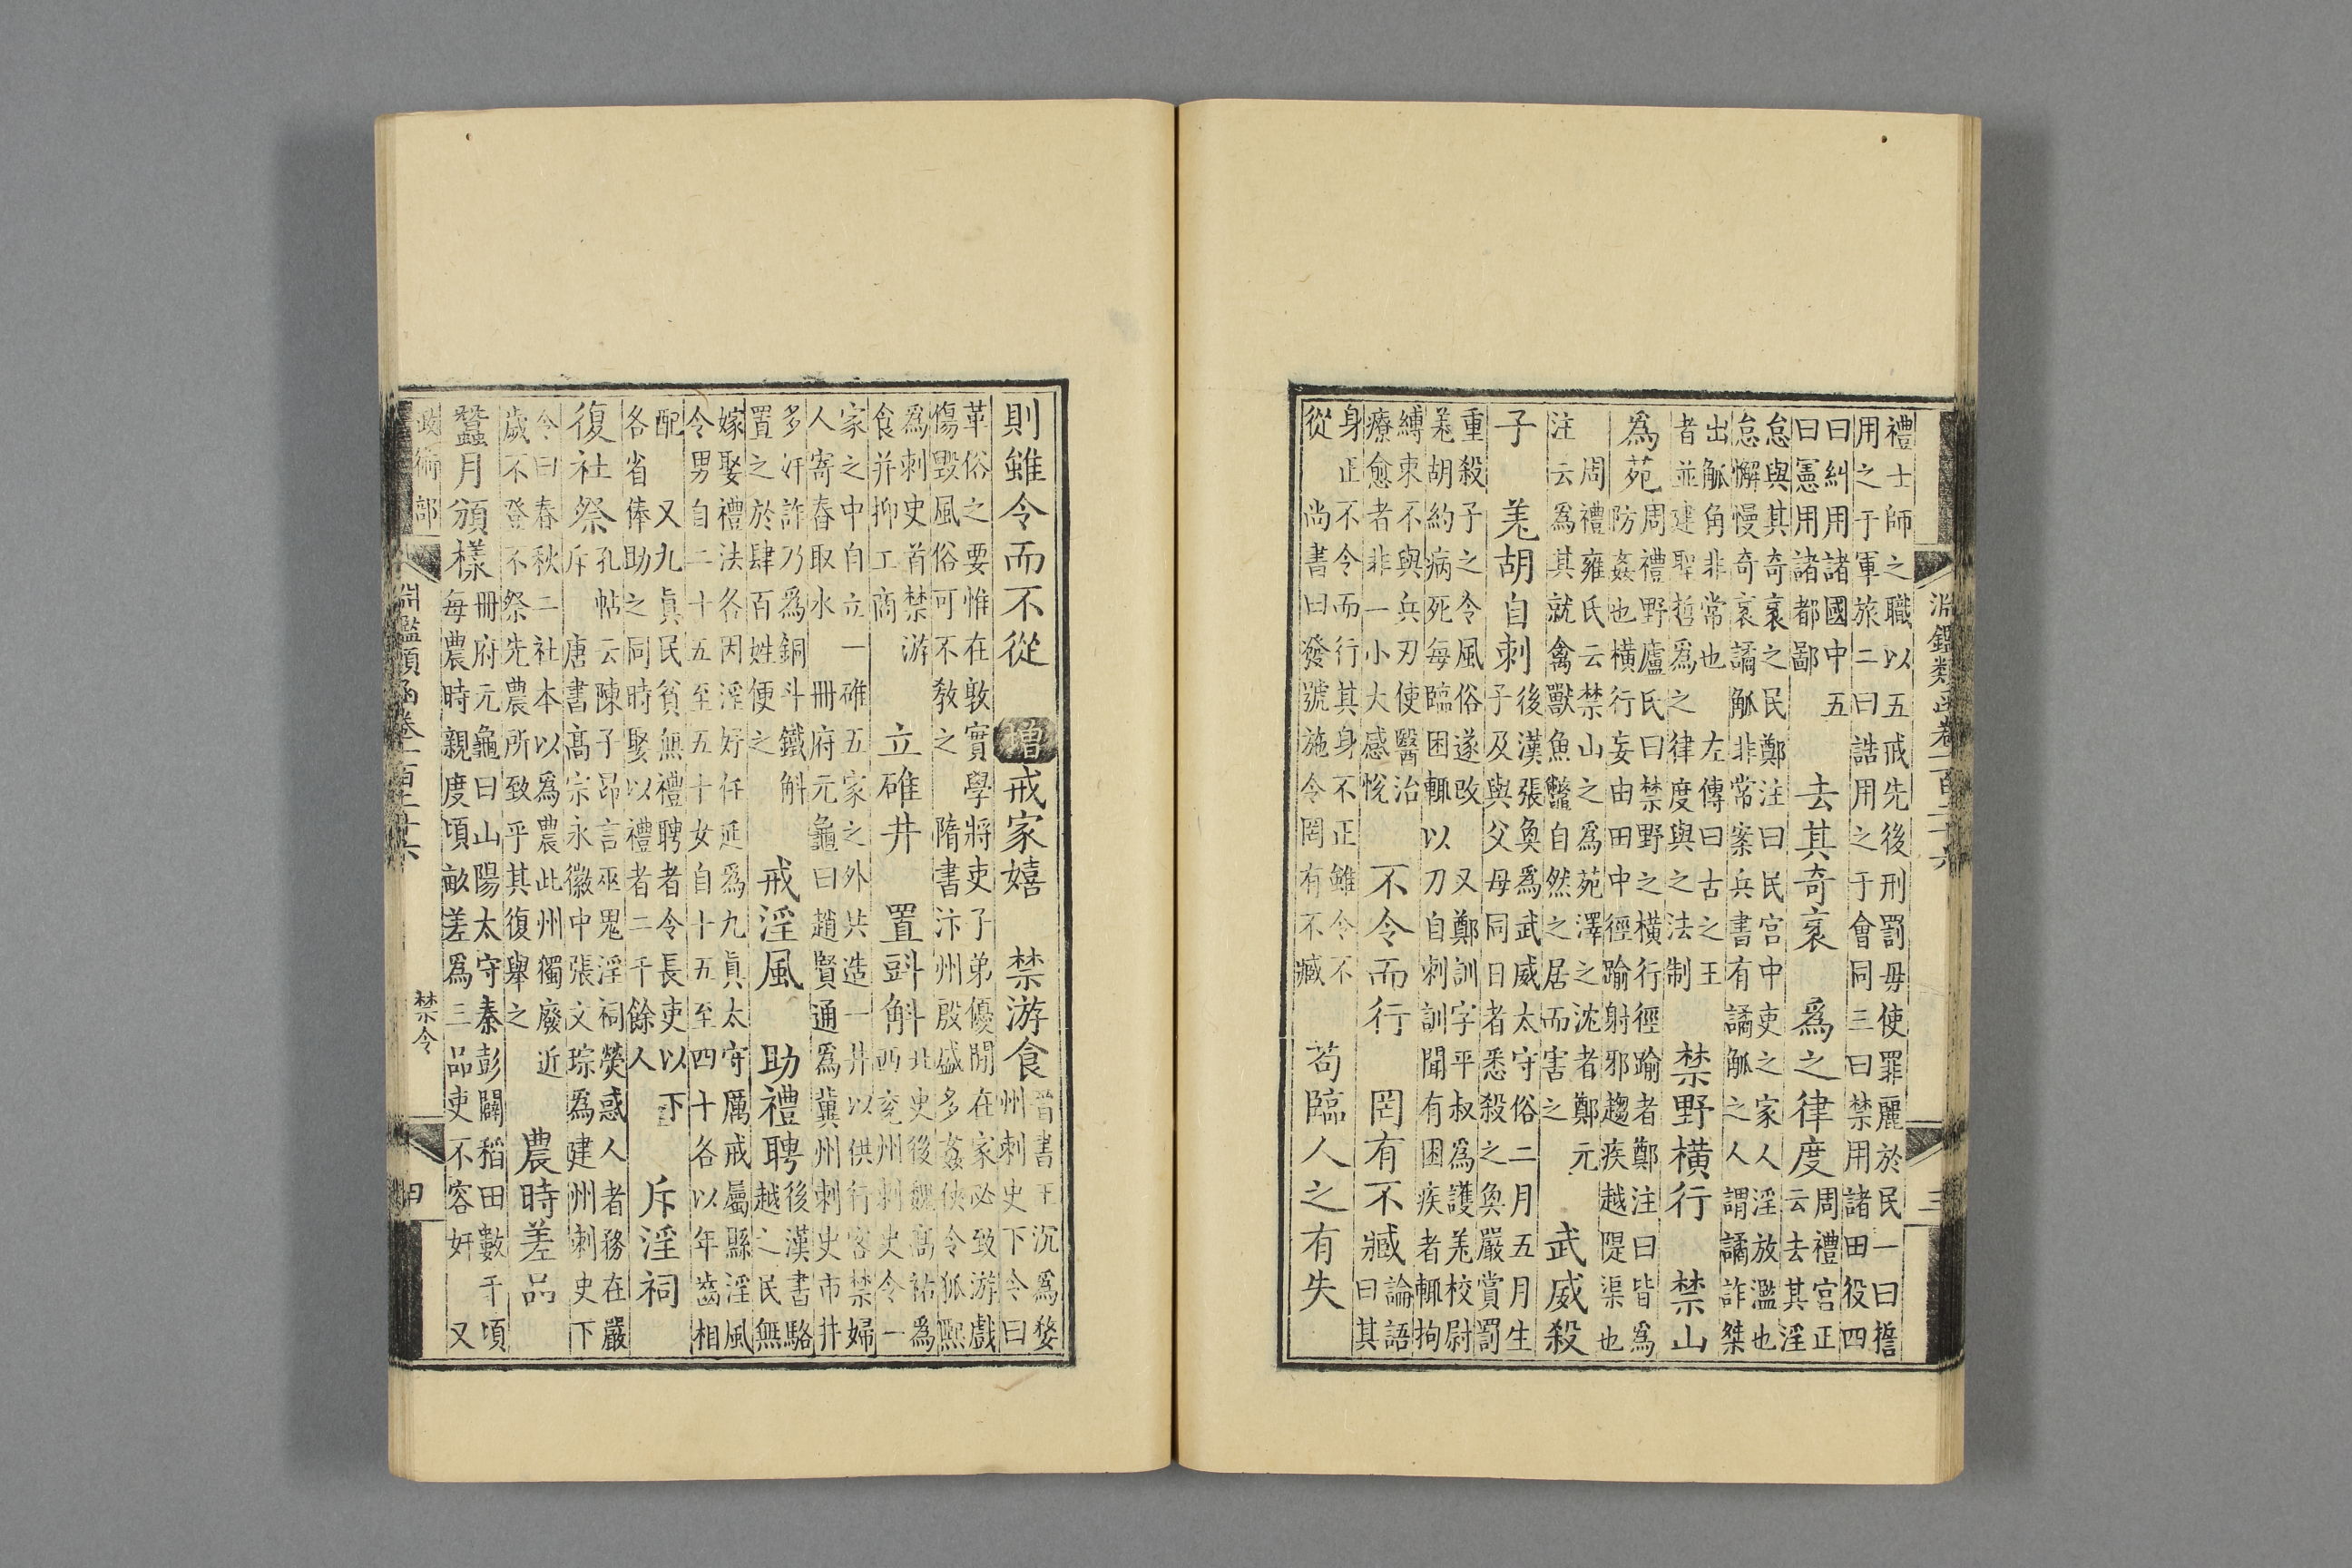 淵鑑類函卷一百二十六 三
禮士師之職以五戒先後刑罰毋使罪麗於民一曰誓
用之于軍旅二曰誥用之于會同三曰禁用諸田役四
曰糾用諸國中五
曰憲用諸都鄙
去其奇衺 爲之律度
周禮宮正
云去其淫
怠與其奇衺之民鄭注曰民宮中吏之家人淫放濫也
怠懈慢奇衺譎觚非常案兵書有譎觚之人謂譎詐桀
出觚角非常也 左傳曰古之王
者並建聖哲爲之律度與之法制
禁野橫行 禁山
爲苑
周禮野廬氏曰禁野之橫行徑踰者鄭注曰皆爲
防姦也橫行妄由田中徑踰射邪趨疾越隄渠也
周禮雍氏云禁山之爲苑澤之沈者鄭元
注云爲其就禽獸魚鼈自然之居而害之
武威殺
子 羌胡自刺
後漢張奐爲武威太守俗二月五月生
子及與父母同日者悉殺之奐嚴賞罰
重殺子之令風俗遂改 又鄭訓字平叔爲護羌校尉
羌胡約病死每臨困輒以刀自刺訓聞有困疾者輒拘
縛束不與兵刃使醫治
療愈者非一小大感悅
不令而行 罔有不臧
論語
曰其
身正不令而行其身不正雖令不
從 尚書曰發號施令罔有不臧
苟臨人之有失
則雖令而不從 增戒家嬉 禁游食
晉書王沉爲婺
州刺史下令曰
革俗之要惟在敦實學將吏子弟優閒在家必致游戲
傷毁風俗可不教之 隋書汴州殷盛多姦俠令狐熙
爲刺史首禁游
食并抑工商
立碓井 置㪷斛
北史後魏高祐爲
西兗州刺史令一
家之中自立一碓五家之外共造一井以供行客禁婦
人寄舂取水 冊府元龜曰趙賢通爲冀州刺史市井
多奸詐乃爲銅斗鐵斛
置之於肆百姓便之
戒淫風 助禮聘
後漢書駱
越之民無
嫁娶禮法各因淫好任延爲九眞太守厲戒屬縣淫風
令男自二十五至五十女自十五至四十各以年齒相
配 又九眞民貧無禮聘者令長吏以下
各省俸助之同時娶以禮者二千餘人
斥淫祠
復社祭
孔帖云陳子昂言巫鬼淫祠熒惑人者務在嚴
斥 唐書高宗永徽中張文琮爲建州刺史下
令曰春秋二社本以爲農此州獨廢近
歲不登不祭先農所致乎其復舉之
農時差品
蠶月頒樣
冊府元龜曰山陽太守秦彭闢稻田數千頃
每農時親度頃畝差爲三品吏不容奸 又
政術部 淵鑑類函卷一百二十六 禁令